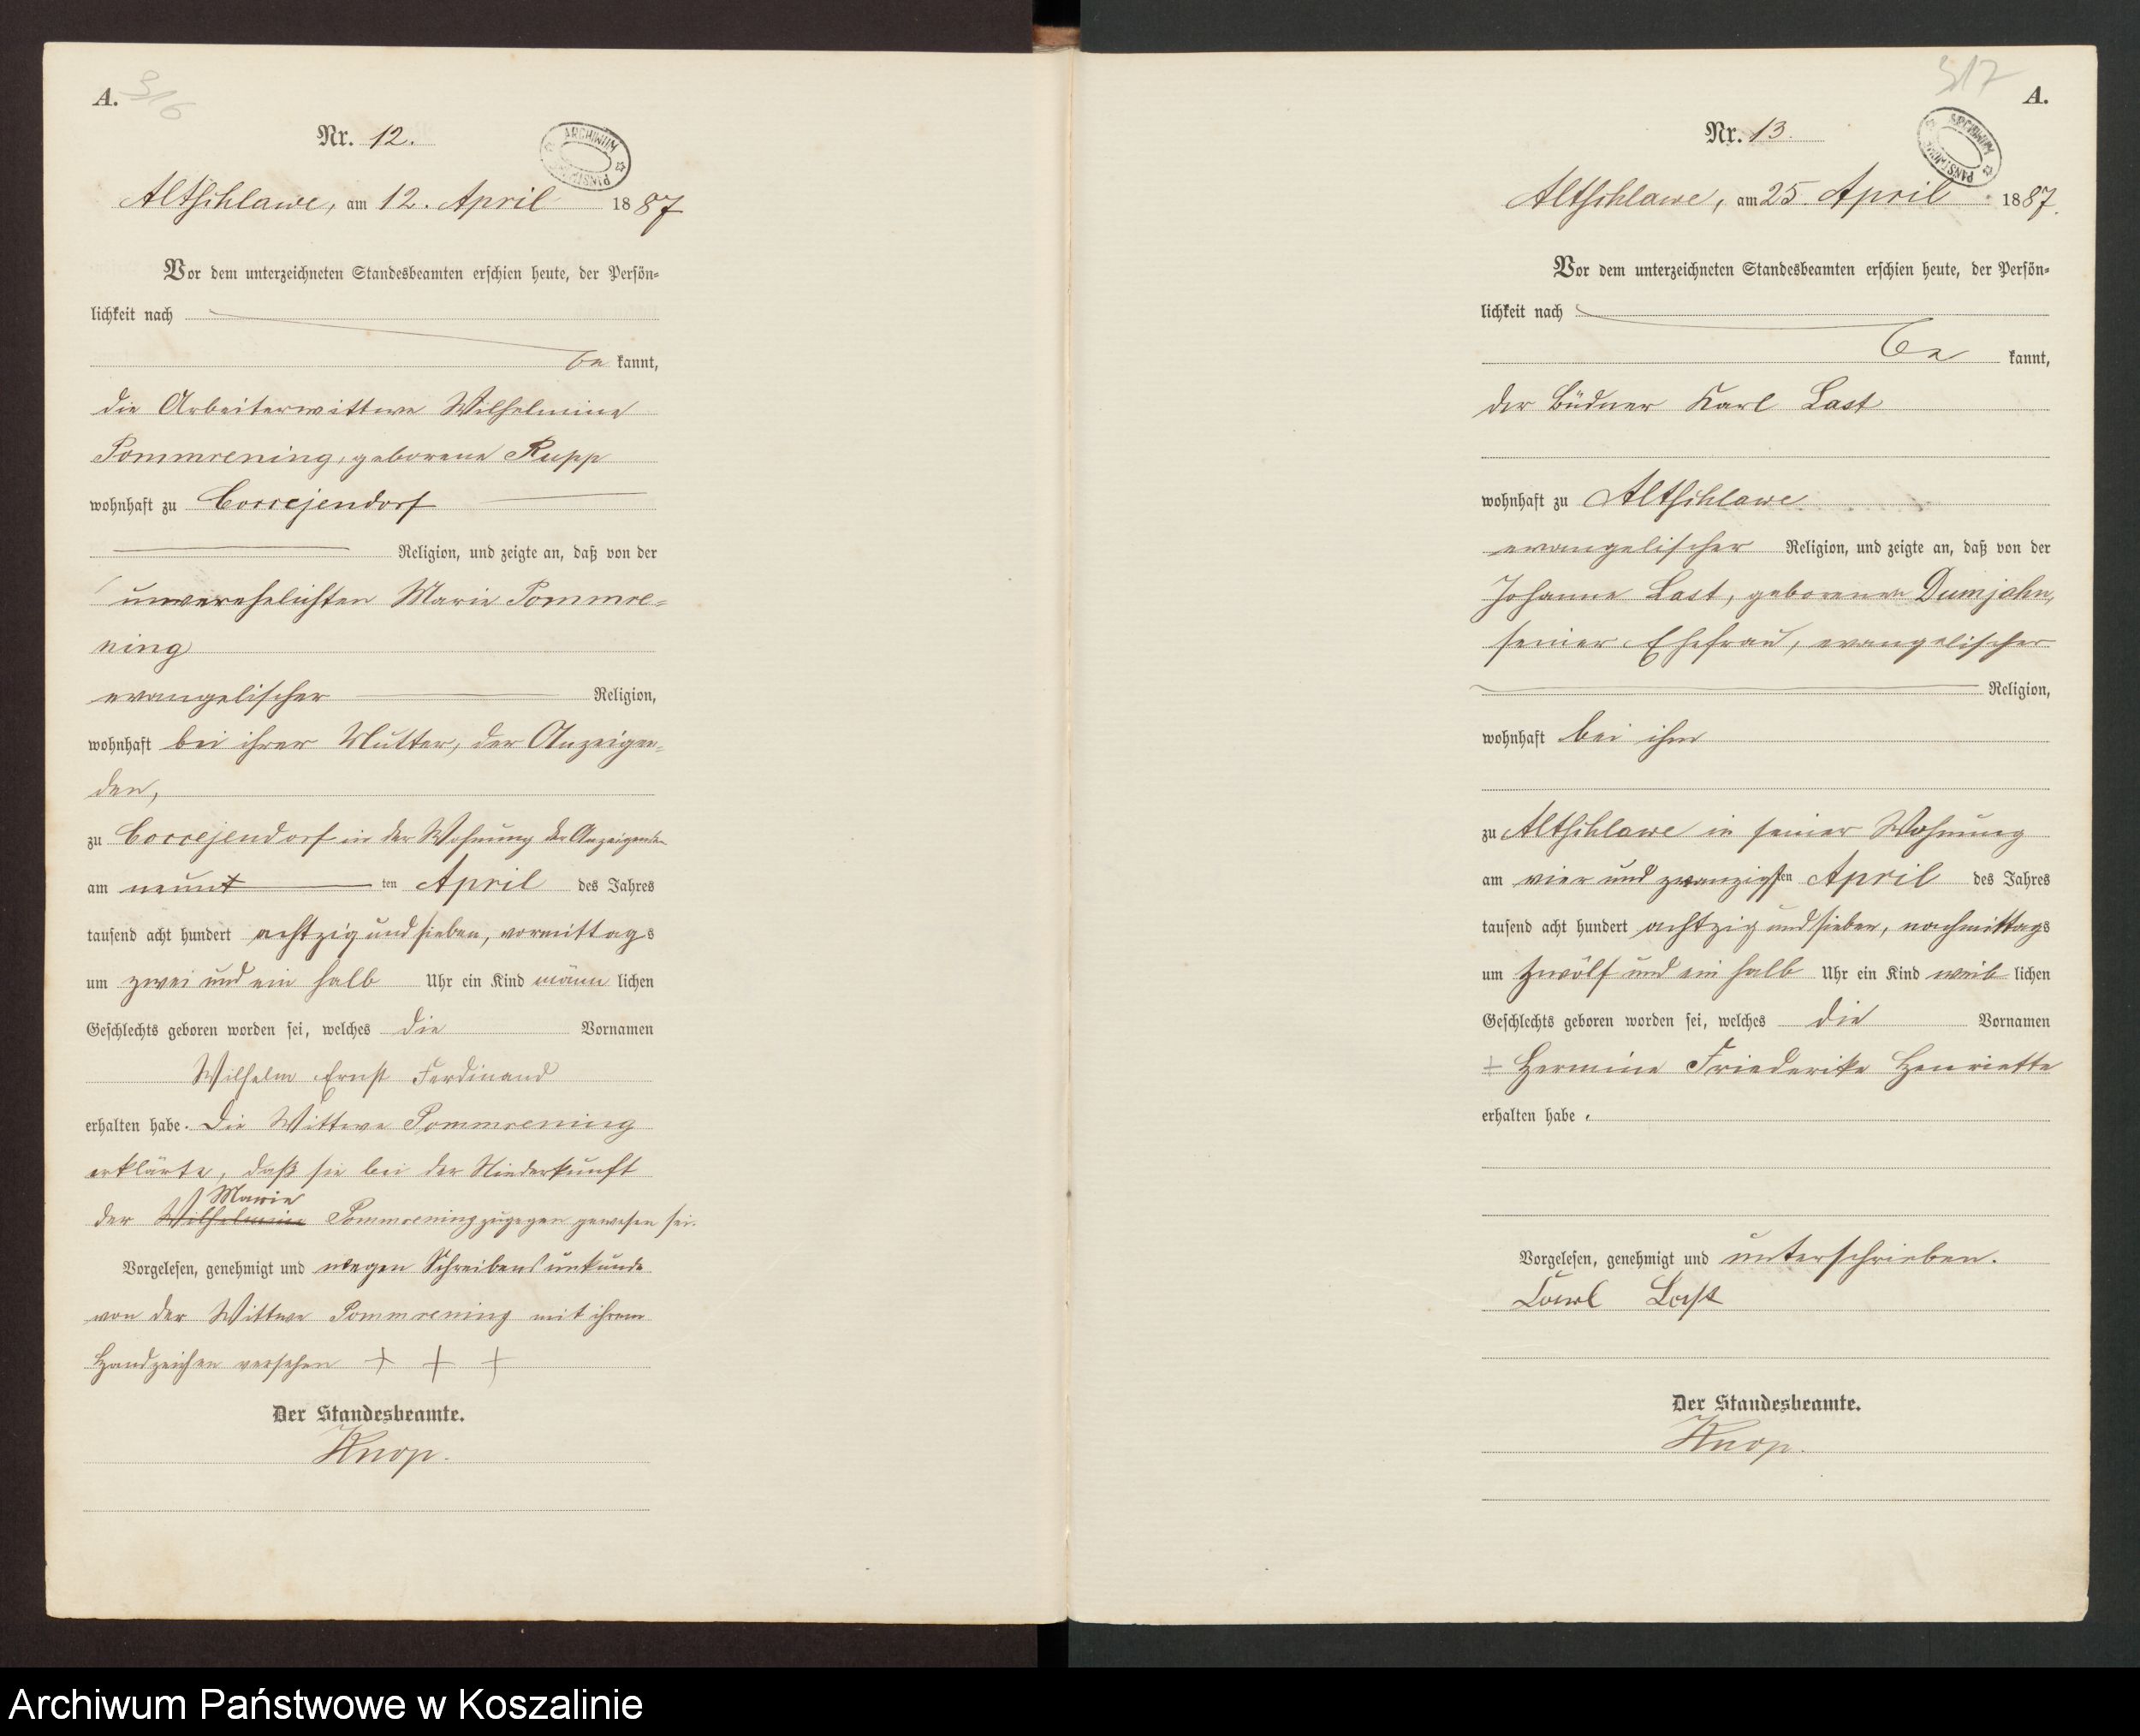 A.
316
Nr. 12.
ARCHIWUM PAŃSTWOWE
Altschlawe, am 12. April 1887
Vor dem unterzeichneten Standesbeamten erschien heute, der Persön=
lichkeit nach
be kannt,
die Arbeiterwittwe Wilhelmine
Pommrening, geborene Rupp
wohnhaft zu Coccejendorf
Religion, und zeigte an, daß von der
unverehelichten Marie Pommre=
ning
evangelischer Religion,
wohnhaft bei ihrer Mutter, der Anzeigen=
den,
zu Coccejendorf in der Wohnung der Anzeigenden
am neunt ten April des Jahres
tausend acht hundert achtzig und sieben, vormittags
um zwei und ein halb Uhr ein Kind männ lichen
Geschlechts geboren worden sei, welches die Vornamen
Wilhelm Ernst Ferdinand
erhalten habe. Die Wittwe Pommrening
erklärte, daß sie bei der Niederkunft
Marie
der Wilhelmine Pommrening zugegen gewesen sei.
Vorgelesen, genehmigt und wegen Schreibensunkunde
von der Wittwe Pommrening mit ihrem
Handzeichen versehen + + +
Der Standesbeamte.
Knop.
317
A.
Nr. 13.
ARCHIWUM PAŃSTWOWE
Altschlawe, am 25 April 1887.
Vor dem unterzeichneten Standesbeamten erschien heute, der Persön=
lichkeit nach
be kannt,
der Büdner Karl Last
wohnhaft zu Altschlawe
evangelischer Religion, und zeigte an, daß von der
Johanne Last, geborenen Dumjahn,
seiner Ehefrau, evangelischer
Religion,
wohnhaft bei ihm
zu Altschlawe in seiner Wohnung
am vier und zwanzigsten April des Jahres
tausend acht hundert achtzig und sieben, nachmittags
um zwölf und ein halb Uhr ein Kind weib lichen
Geschlechts geboren worden sei, welches die Vornamen
+ Hermine Friederike Henriette
erhalten habe.
Vorgelesen, genehmigt und unterschrieben.
Carl Last
Der Standesbeamte.
Knop.
Archiwum Państwowe w Koszalinie